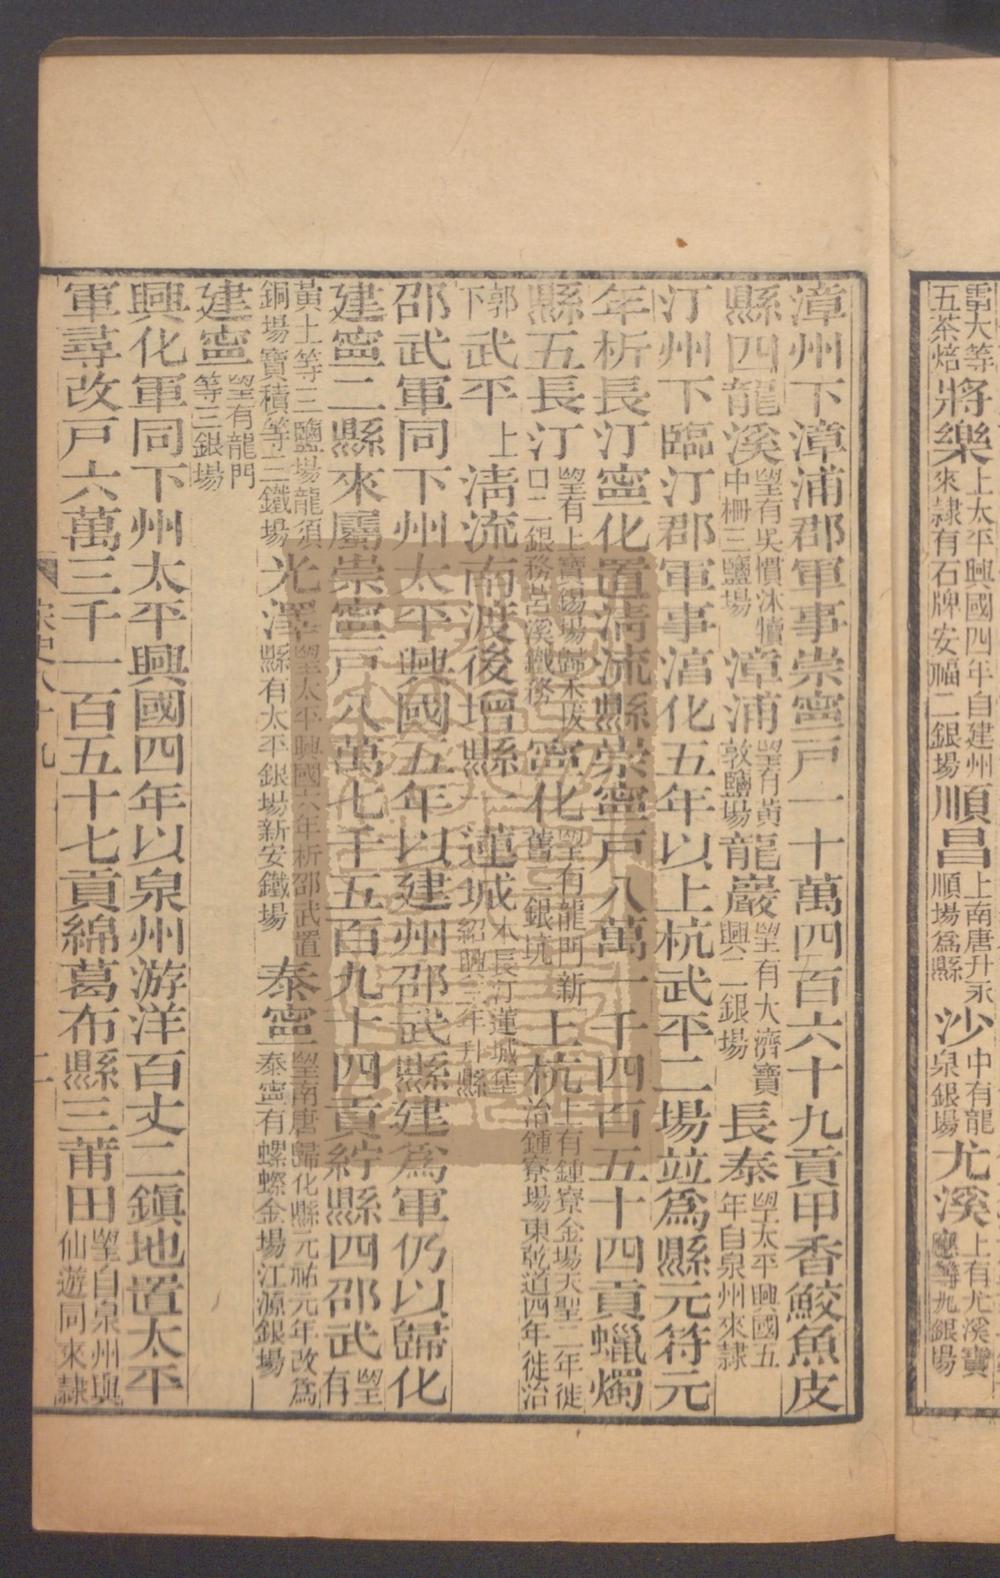 雩大等
五茶焙將樂上太平興國四年自建州
來隷有石牌安福二銀場順昌上南唐升永
順場爲縣沙中有龍
泉銀場尤溪上有尤溪寶
應等九銀場
漳州下漳浦郡軍事崇寧戸一十萬四百六十九貢甲香鮫魚皮
縣四龍溪望有吳慣沐犢
中柵三鹽場漳浦望有黃
敦鹽場龍巖望有大濟寶
興二銀場長泰望太平興國五
年自泉州來隷
汀州下臨汀郡軍事淳化五年以上杭武平二場竝爲縣元符元
年析長汀寧化置清流縣崇寧戸八萬一千四百五十四貢蠟燭
縣五長汀望有上寶錫場歸禾拔
口二銀務莒溪鐵務寧化望有龍門新
舊二銀坑上杭上有鍾寮金場天聖二年徙
治鍾寮場東乾道四年徙治
郭
下武平上清流南渡後增縣一蓮城本長汀蓮城堡
紹興三年升縣
邵武軍同下州太平興國五年以建州邵武縣建爲軍仍以歸化
建寧二縣來屬崇寧戸八萬七千五百九十四貢紵縣四邵武望
有
黃土等三鹽場龍須
銅場寶積等三鐵場光澤望太平興國六年析邵武置
縣有太平銀場新安鐵場泰寧望南唐歸化縣元祐元年改爲
泰寧有螺螺金場江源銀場
建寧望有龍門
等三銀場
興化軍同下州太平興國四年以泉州游洋百丈二鎮地置太平
軍尋改戸六萬三千一百五十七貢綿葛布縣三莆田望自泉州與
仙遊同來隷
宋史八十九